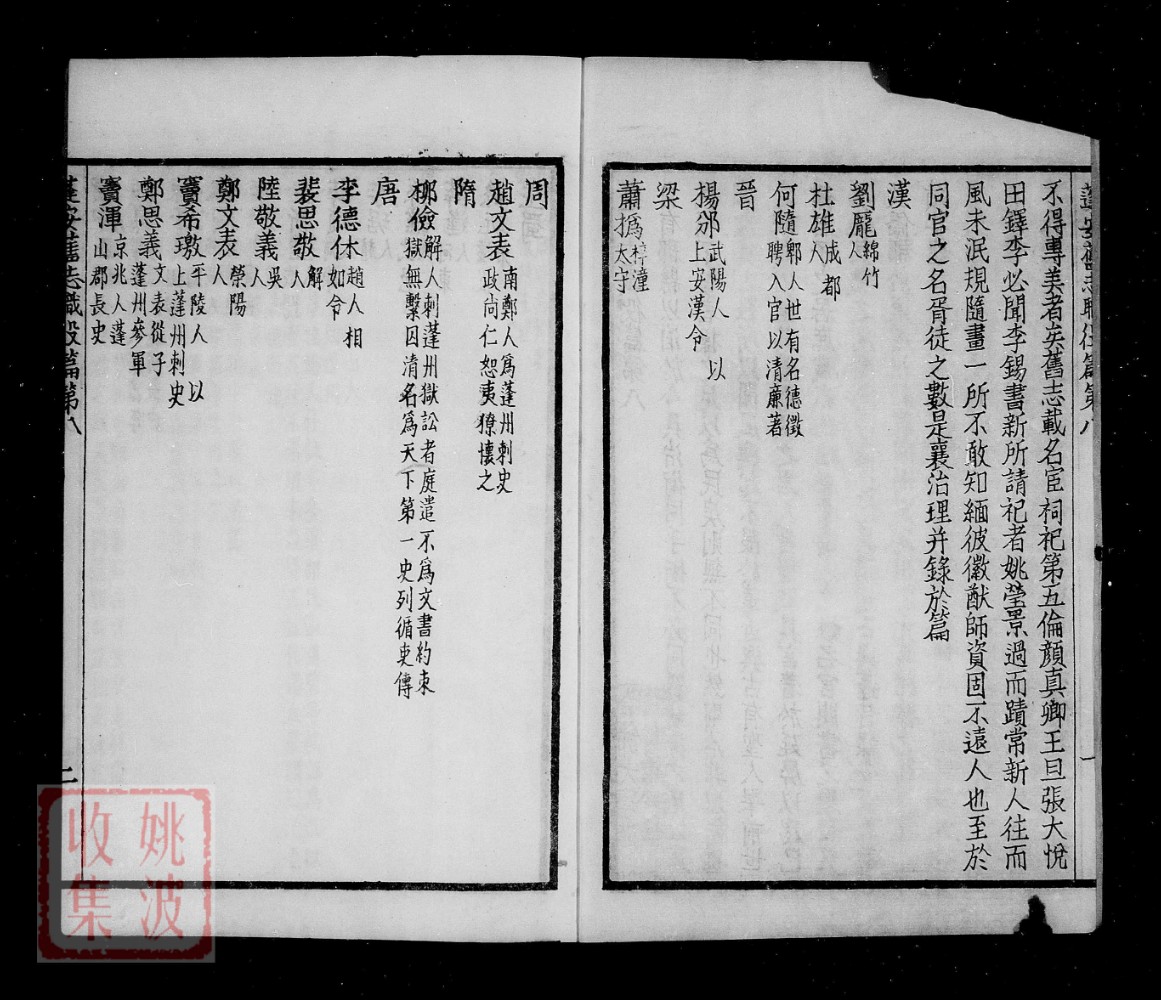 不得專美者矣舊志載名宦祠祀第五倫顏真卿王旦張大悅
田鐸李必聞李錫書新所請祀者姚瑩景過而蹟常新人往而
風未泯規隨畫一所不敢知緬彼徽猷師資固不遠人也至於
同官之名胥徒之數是襄治理并錄於篇
漢
劉龐綿竹人
杜雄成都人
何隨郫人世有名德徵聘入官以清廉著
晉
楊邠武陽人以上安漢令
梁
蕭撝梓潼太守
一
周
趙文表南鄭人為蓬州刺史政尚仁恕夷獠懷之
隋
柳儉解人刺蓬州獄訟者庭遣不為文書約束獄無繫囚清名為天下第一史列循吏傳
唐
李德休趙人相如令
裴思敬解人
陸敬義吳人
鄭文表滎陽人
竇希璬平陵人以上蓬州刺史
鄭思義文表從子蓬州參軍
竇渾京兆人蓬山郡長史
蓬安舊志職役篇第八
二
姚波
收集